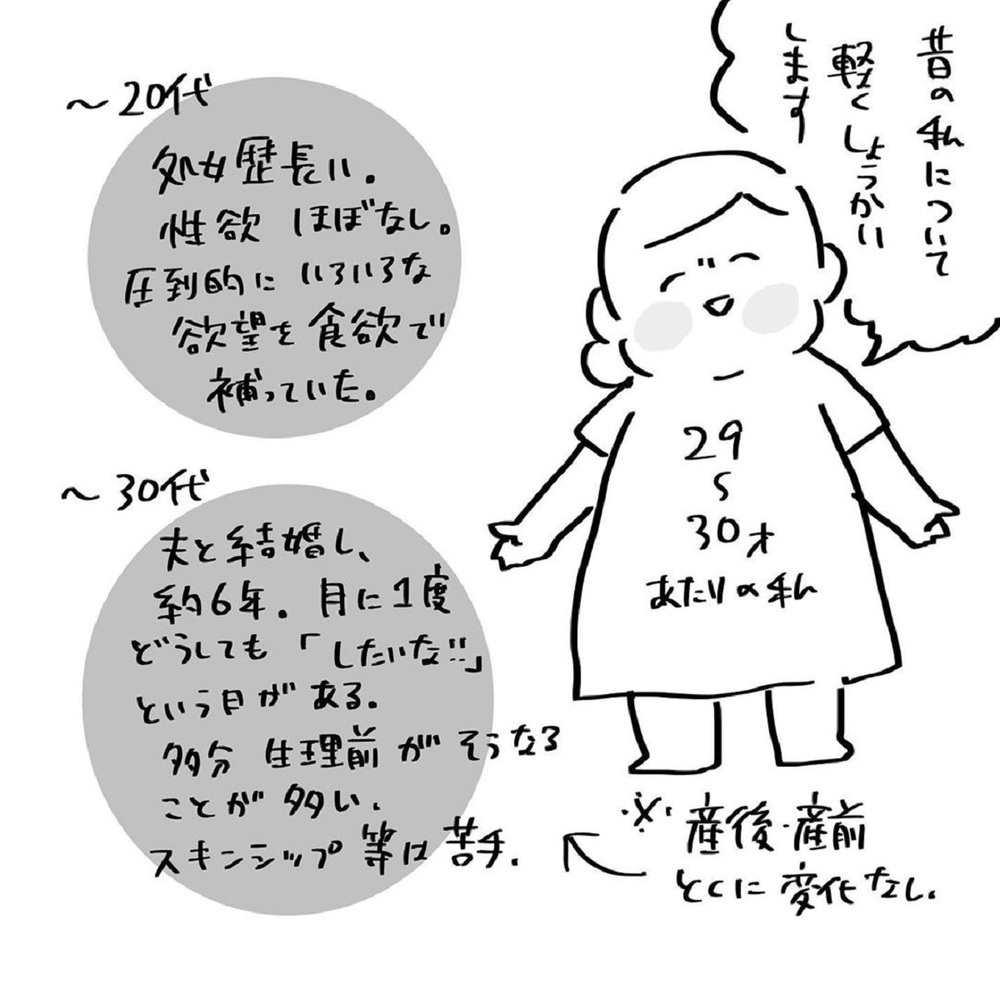 昔の私について
軽くしょうかい
します
～20代
処女歴長い。
性欲 ほぼなし。
圧到的に いろいろな
欲望を食欲で
補っていた。
～30代
夫と結婚し、
約6年。月に1度
どうしても「したいな!!」
という日がある。
多分 生理前がそうなる
ことが多い、
スキンシップ等は苦手.
29
～
30才
あたりの私
※産後・産前
とくに変化なし.